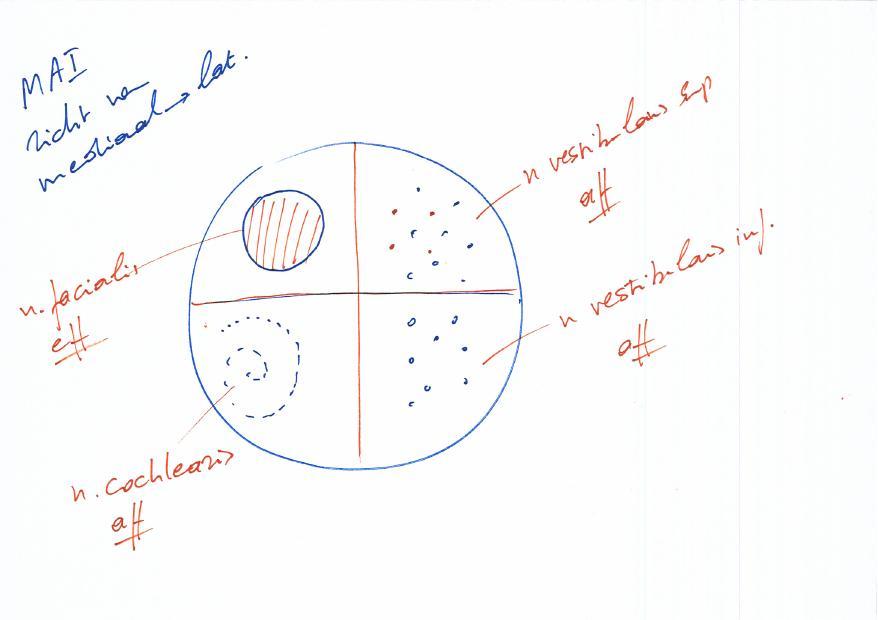 MAI
zicht van
mediaal → lat.
n vestibularis sup
aff
n. facialis
eff
n vestibularis inf.
aff
n. cochlearis
aff